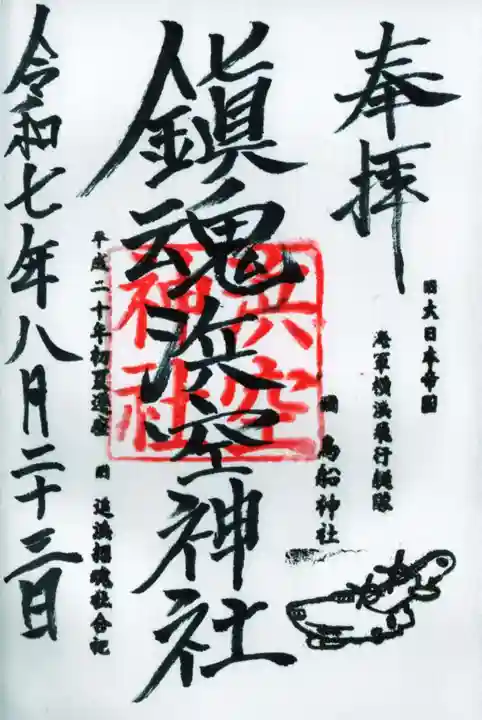 奉拝
旧大日本帝国
海軍横浜飛行機隊
旧 鳥船神社
鎮魂浜空神社
浜空
神社
平成二十年初夏遷座 旧 追浜招魂社合祀
令和七年八月二十三日